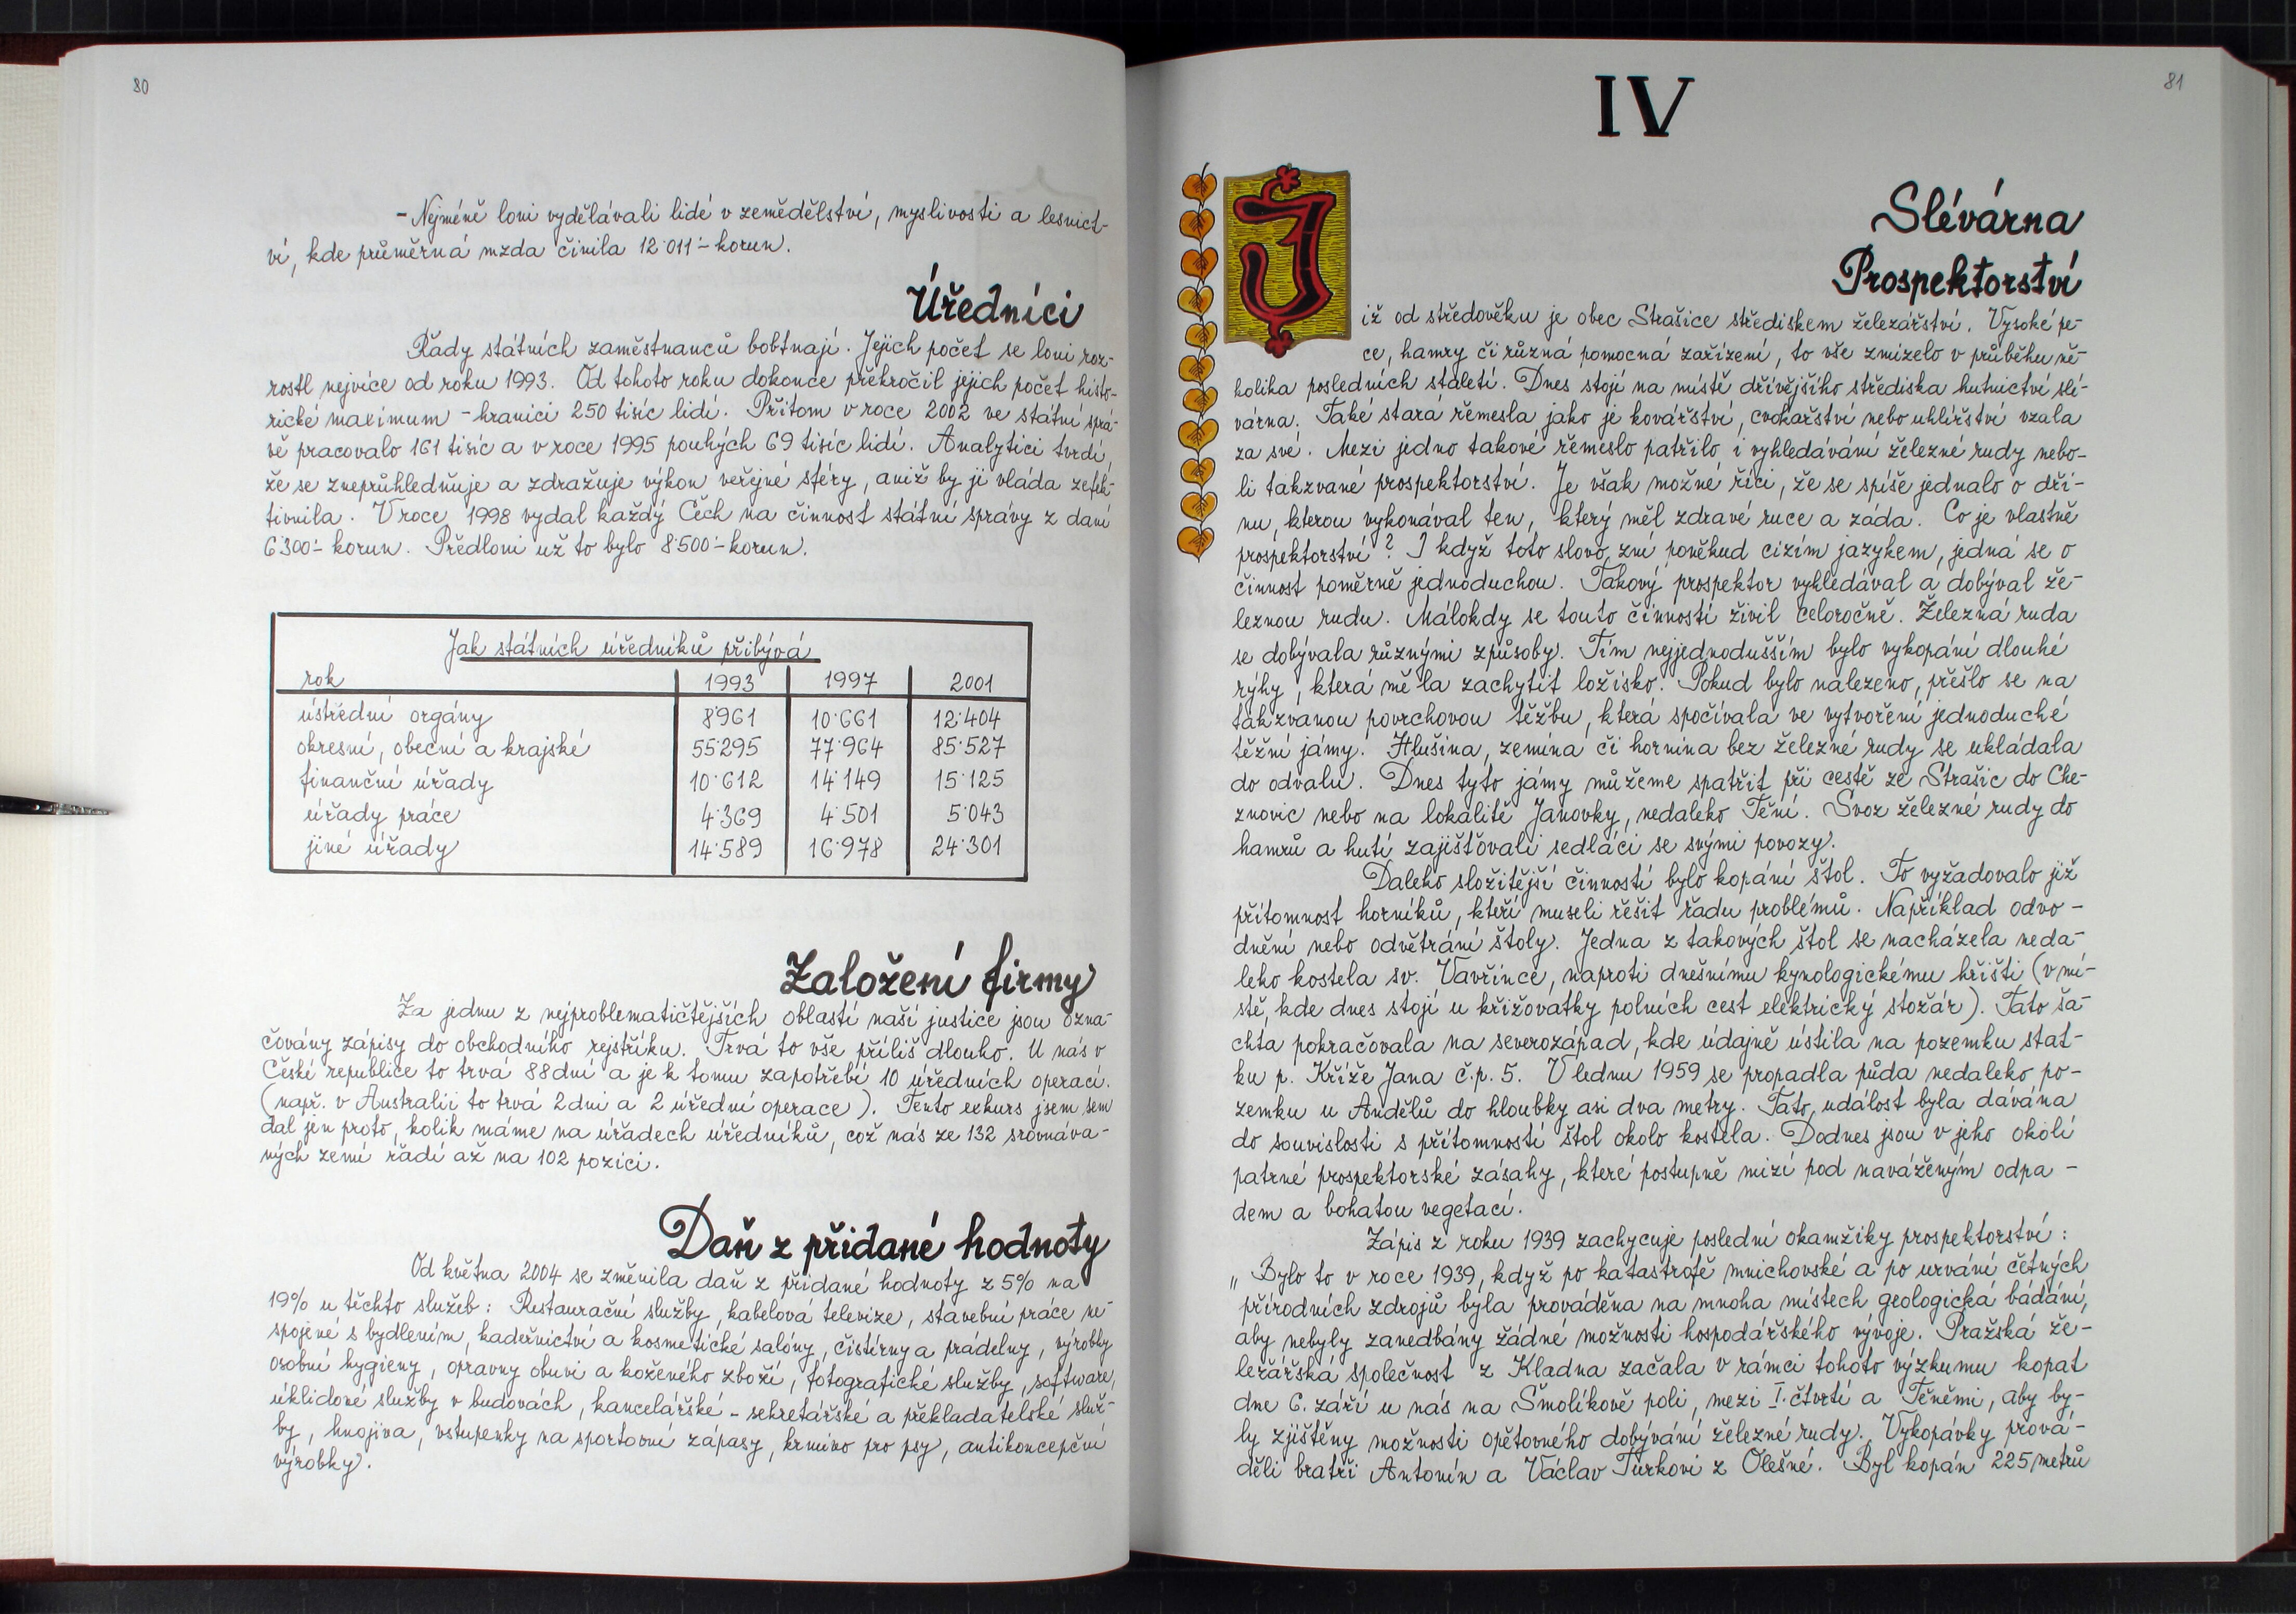 80
- Nejméně loni vydělávali lidé v zemědělství, myslivosti a lesnict-
ví, kde průměrná mzda činila 12˙011˙- korun.
Úředníci
Řady státních zaměstnanců bobtnají. Jejich počet se loni roz-
rostl nejvíce od roku 1993. Od tohoto roku dokonce překročil jejich počet histo-
rické maximum - hranici 250 tisíc lidí. Přitom v roce 2002 ve státní sprá-
vě pracovalo 161 tisíc a v roce 1995 pouhých 69 tisíc lidí. Analytici tvrdí,
že se zneprůhledňuje a zdražuje výkon veřejné sféry, aniž by ji vláda zefek-
tivnila. V roce 1998 vydal každý Čech na činnost státní správy z daní
6˙300˙- korun. Předloni už to bylo 8˙500˙- korun.
Jak státních úředníků přibývá
rok 1993 1997 2001
ústřední orgány 8˙961 10˙661 12˙404
okresní, obecní a krajské 55˙295 77˙964 85˙527
finanční úřady 10˙612 14˙149 15˙125
úřady práce 4˙369 4˙501 5˙043
jiné úřady 14˙589 16˙978 24˙301
Založení firmy
Za jednu z nejproblematičtějších oblastí naší justice jsou ozna-
čovány zápisy do obchodního rejstříku. Trvá to vše příliš dlouho. U nás v
České republice to trvá 88 dní a je k tomu zapotřebí 10 úředních operací.
(např. v Austrálii to trvá 2 dni a 2 úřední operace). Tento exkurs jsem sem
dal jen proto, kolik máme na úřadech úředníků, což nás ze 132 srovnáva-
ných zemí řadí až na 102 pozici.
Daň z přidané hodnoty
Od května 2004 se změnila daň z přidané hodnoty z 5% na
19% u těchto služeb: Restaurační služby, kabelová televize, stavební práce ne-
spojené s bydlením, kadeřnictví a kosmetické salóny, čistírny a prádelny, výrobky
osobní hygieny, opravny obuvi a koženého zboží, fotografické služby, software,
úklidové služby v budovách, kancelářské - sekretářské a překladatelské služ-
by, hnojiva, vstupenky na sportovní zápasy, krmivo pro psy, antikoncepční
výrobky.
81
IV
Slévárna
Prospektorství
Již od středověku je obec Strašice střediskem železářství. Vysoké pe-
ce, hamry či různá pomocná zařízení, to vše zmizelo v průběhu ně-
kolika posledních století. Dnes stojí na místě dřívějšího střediska hutnictví slé-
várna. Také stará řemesla jako je kovářství, cvokařství nebo uhlířství vzala
za své. Mezi jedno takové řemeslo patřilo i vyhledávání železné rudy nebo-
li takzvané prospektorství. Je však možné říci, že se spíše jednalo o dři-
nu, kterou vykonával ten, který měl zdravé ruce a záda. Co je vlastně
prospektorství? I když toto slovo zní poněkud cizím jazykem, jedná se o
činnost poměrně jednoduchou. Takový prospektor vyhledával a dobýval že-
leznou rudu. Málokdy se touto činností živil celoročně. Železná ruda
se dobývala různými způsoby. Tím nejjednodušším bylo vykopání dlouhé
rýhy, která měla zachytit ložisko. Pokud bylo nalezeno, přešlo se na
takzvanou povrchovou těžbu, která spočívala ve vytvoření jednoduché
těžní jámy. Hlušina, zemina či hornina bez železné rudy se ukládala
do odvalu. Dnes tyto jámy můžeme spatřit při cestě ze Strašic do Che-
znovic nebo na lokalitě Janovky, nedaleko Tění. Svoz železné rudy do
hamrů a hutí zajišťovali sedláci se svými povozy.
Daleko složitější činností bylo kopání štol. To vyžadovalo již
přítomnost horníků, kteří museli řešit řadu problémů. Například odvo-
dnění nebo odvětrání štoly. Jedna z takových štol se nacházela neda-
leko kostela sv. Vavřince, naproti dnešnímu kynologickému hřišti (v mí-
stě, kde dnes stojí u křižovatky polních cest elektrický stožár). Tato ša-
chta pokračovala na severozápad, kde údajně ústila na pozemku stat-
ku p. Kříže Jana č.p. 5. V lednu 1959 se propadla půda nedaleko po-
zemku u Andělů do hloubky asi dva metry. Tato událost byla dávána
do souvislosti s přítomností štol okolo kostela. Dodnes jsou v jeho okolí
patrné prospektorské zásahy, které postupně mizí pod naváženým odpa-
dem a bohatou vegetací.
Zápis z roku 1939 zachycuje poslední okamžiky prospektorství:
„Bylo to v roce 1939, když po katastrofě mnichovské a po urvání četných
přírodních zdrojů byla prováděna na mnoha místech geologická bádání,
aby nebyly zanedbány žádné možnosti hospodářského vývoje. Pražská že-
lezářska společnost z Kladna začala v rámci tohoto výzkumu kopat
dne 6. září u nás na Šmolíkově poli, mezi I. čtvrtí a Těněmi, aby by-
ly zjištěny možnosti opětovného dobývání železné rudy. Vykopávky prová-
děli bratři Antonín a Václav Turkovi z Olešné. Byl kopán 225 metrů